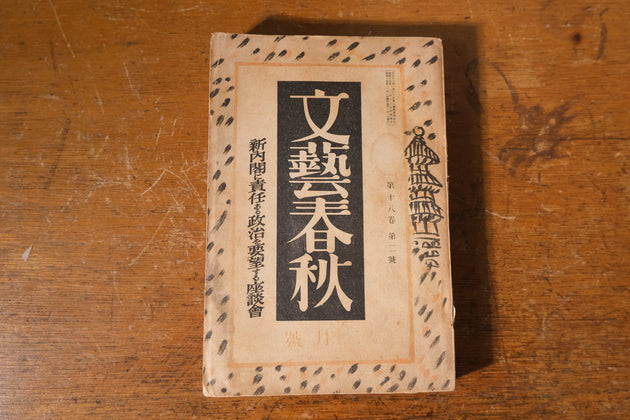 文藝春秋
新内閣に責任ある政治を要望する座談會
第十八卷 第二號
月號